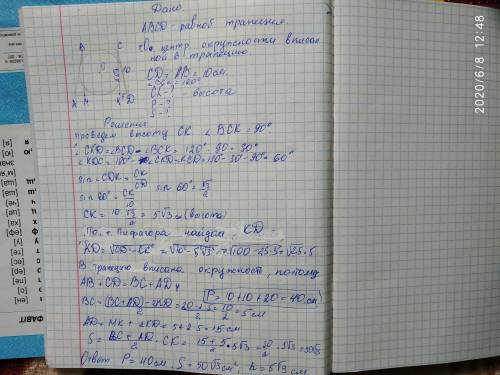 Дано.
ABCD - равноб трапеция.
О - центр окружности вписан
ной в трапецию.
CD = AB = 10 см.
CK - ? - высота
P - ?
S - ?
B C
10
A H K D
Решение
проведем высоту CK ∠BCK = 90°
∠CKD = ∠BCD - ∠BCK = 120° - 90 = 30°
∠KDC = 180° - ∠CKD - KCD = 180° - 30° - 90° = 60°
sin ∠CDK = CK/CD sin 60° = √3/2
sin 60° = CK/10
CK = 10·√3/2 = 5√3 см (высота)
По т. Пифагора найдем KD
KD = √CD² - CK² = √10² - 5√3² = √100 - 25·3 = √25 = 5
В трапецию вписана окружность, потому
AB + CD = BC + AD
P = 10 + 10 + 20 = 40 см
BC = (BC + AD) - 2KD/2 = 20 - 2·5/2 = 10/2 = 5 см
AD = HK + 2KD = 5 + 2·5 = 15 см
S = BC + AD/2 · CK = 15 + 5/2 · 5√3 = 20/2 · 5√3 = 50√3
Ответ P = 40 см, S = 50√3 см², h = 5√3 см
2020/6/8 12:48
ФАВІТ